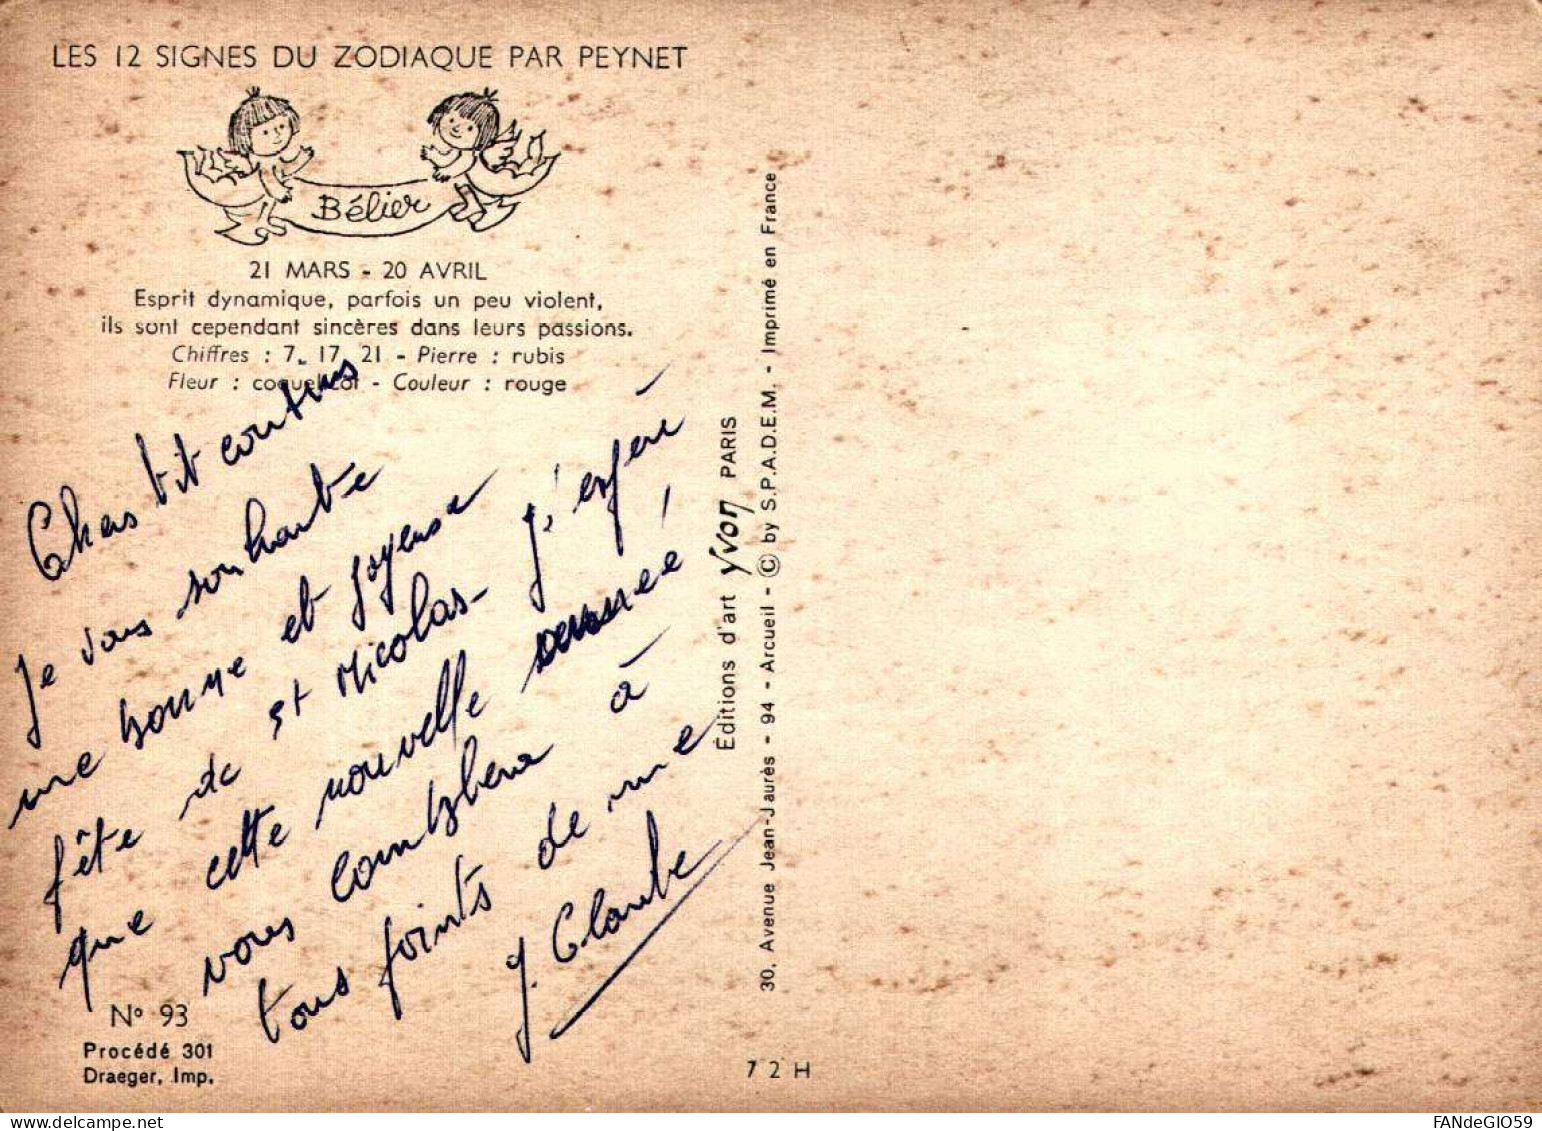 LES 12 SIGNES DU ZODIAQUE PAR PEYNET
Bélier
21 MARS - 20 AVRIL
Esprit dynamique, parfois un peu violent,
ils sont cependant sincères dans leurs passions.
Chiffres : 7, 17, 21 - Pierre : rubis
Fleur : coquelicot - Couleur : rouge
Chers tit cousins
Je vous souhaite
une bonne et joyeuse
fête de St Nicolas - J'espère
que cette nouvelle année
vous comblera à
tous points de vue
J. Claude
N° 93
Procédé 301
Draeger, Imp.
Éditions d'art yvon PARIS
30, Avenue Jean-Jaurès - 94 - Arcueil - © by S.P.A.D.E.M. - Imprimé en France
7 2 H
FANdeGIO59